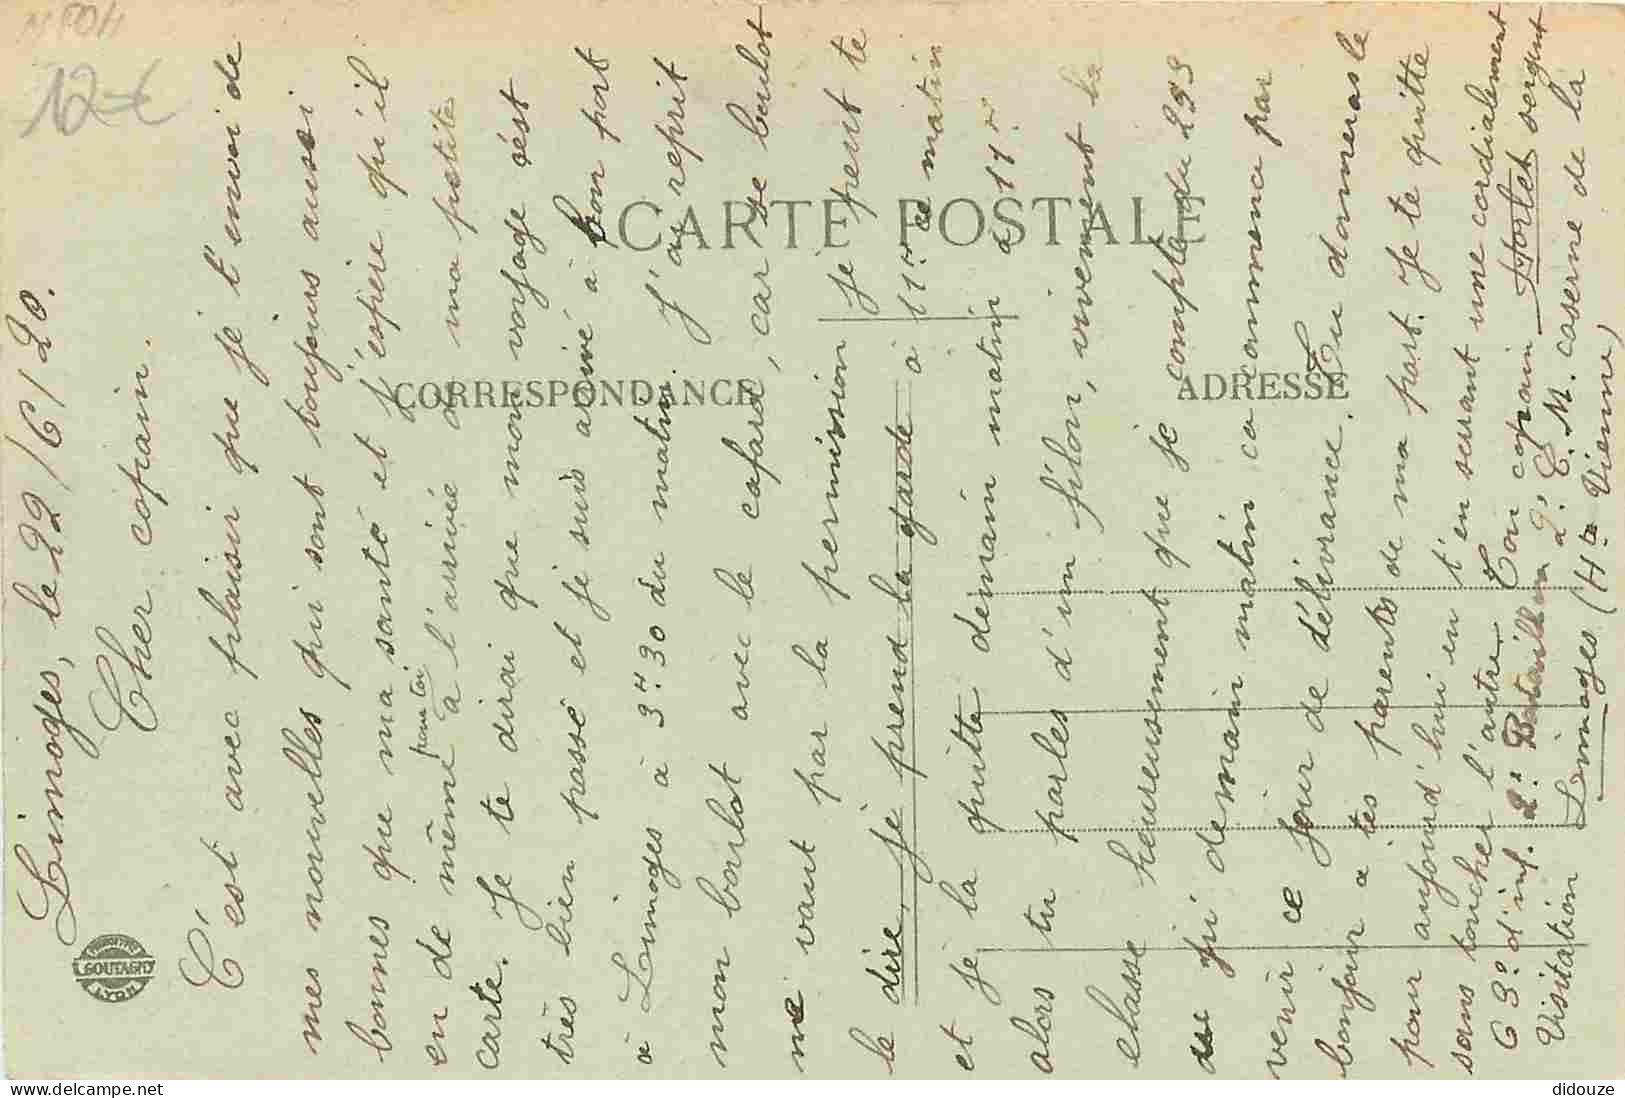 Limoges, le 22/6/20.
Cher copain.
C'est avec plaisir que je t'envoi de
mes nouvelles qui sont toujours aussi
bonnes que ma santé et j'éspère qu'il
en de même pour toi à l'arrivée de ma petite
carte. Je te dirai que mon voyage s'ést
très bien passé et je suis arivé à bon port
à Limoges à 3h30 du matin. J'ai reprit
mon boulot avec le cafard, car se boulot
me vaut pas la permission je peut te
le dire, je prend la garde à 11h ce matin
et je la quitte demain matin à 11h.
alors tu parles d'un filon, vivement la
classe heureusement que je compte du 299
qui demain matin ca commence par
venir ce jour de délivrance. Tu donneras le
bonjour a tes parents de ma part. Je te quitte
pour aujourd'hui en t'en serrant une cordialement
sans toucher l'autre. Ton copain sergent
63e d'inf. 2e Bataillon 2e C.M. caserne de la
Visitation Limoges (Hte Vienne)
CARTE POSTALE
CORRESPONDANCE
ADRESSE
GOUTAGNY
LYON
12 €
didouze